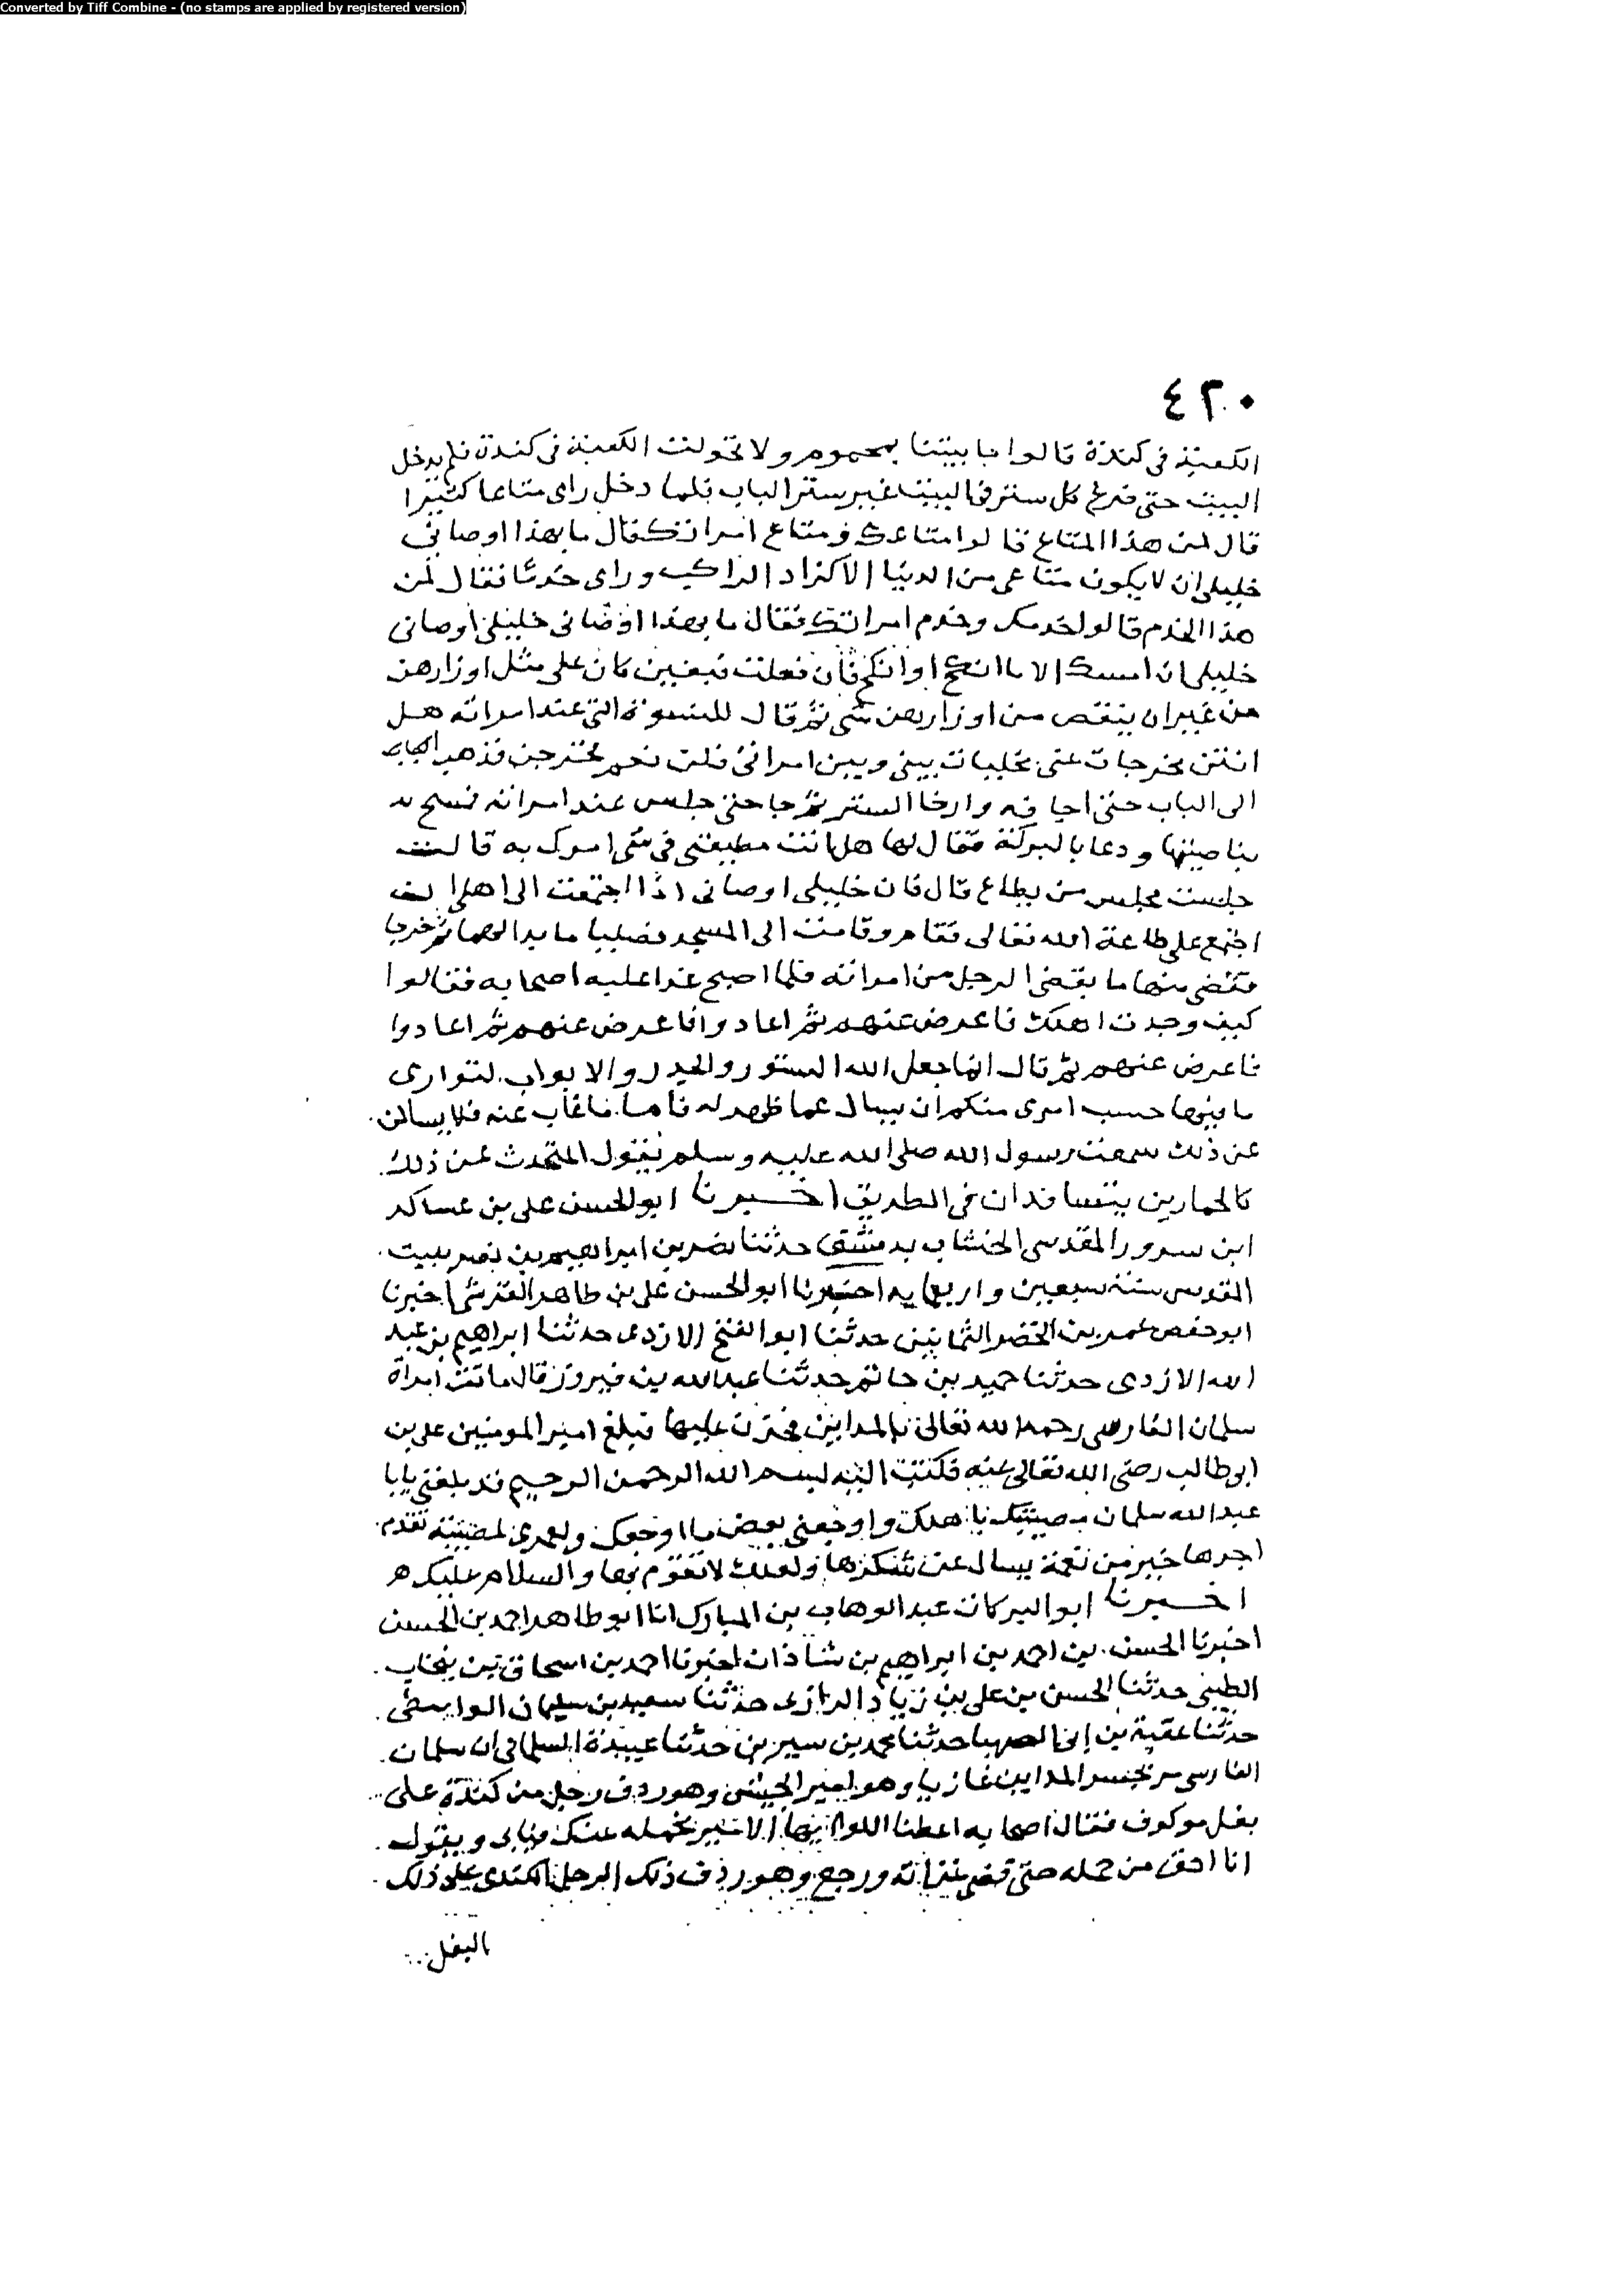 Converted by Tiff Combine - (no stamps are applied by registered version)
٤٢٠
الكعبة في كندة قالوا ما بيتنا بمحموم ولا تحولت الكعبة في كندة فلم يدخل
البيت حتى نزع كل ستر في البيت غير ستر الباب فلما دخل راى متاعا كثيرا
قال لمن هذا المتاع قالوا متاعك ومتاع امراتك فقال ما بهذا اوصاني
خليلي ان لا يكون متاعي من الدنيا الا كزاد الراكب وراى خدما فقال لمن
هذا الخدم قالوا خدمك وخدم امراتك فقال ما بهذا اوصاني خليلي اوصاني
خليلي ان امسك الا ما انكح او انكح فان فعلت فبغين كان علي مثل اوزارهن
من غير ان ينقص من اوزارهن شي ثم قال للنسوة التي عند امراته هل
انتن مخرجات عني مخليات بيني وبين امراتي قلن نعم فخرجن فذهب
الى الباب حتى اجافه وارخا الستر ثم جا حتى جلس عند امراته فمسح
بناصيتها ودعا بالبركة فقال لها هل انت مطيعتي في شي امرك به قالت
جلست مجلس من يطاع قال فان خليلي اوصاني اذا اجتمعت الى اهلي ان
اجتمع على طاعة الله تعالى فقام وقامت الى المسجد فصليا ما بدا لهما ثم خرجا
فقضى منها ما يقضي الرجل من امراته فلما اصبح غدا عليه اصحابه فقالوا
كيف وجدت اهلك فاعرض عنهم ثم اعادوا فاعرض عنهم ثم اعادوا
فاعرض عنهم ثم قال انما جعل الله الستور والخدر والابواب لتوارى
ما فيها حسب امرى منكم ان يسال عما ظهر له فاما ما غاب عنه فلا يسالن
عن ذلك سمعت رسول الله صلى الله عليه وسلم يقول المتحدث عن ذلك
كالحمارين يتسافدان في الطريق اخبرنا ابو الحسن علي بن عساكر
ابن سرور المقدسي الخشاب بدمشق حدثنا نصر بن ابراهيم بن نصر ببيت
المقدس سنة سبعين واربعمايه اخبرنا ابو الحسن علي بن طاهر القرشي اخبرنا
ابو حفص عمر بن الخضر الثمانيني حدثنا ابو الفتح الازدي حدثنا ابراهيم بن عبد
الله الازدي حدثنا حميد بن حاتم حدثنا عبد الله بن فيروز قال ماتت امراة
سلمان الفارسي رحمه الله تعالى بالمداين فحزن عليها فبلغ امير المومنين علي بن
ابي طالب رضى الله تعالى عنه فكتب اليه بسم الله الرحمن الرحيم قد بلغني يابا
عبد الله سلمان مصيبتك باهلك واوجعني بعض ما اوجعك ولعمري لمصيبة تقدم
اجرها خير من نعمة يسال عن شكرها ولعلك لا تقوم بها والسلام عليك ه
اخبرنا ابو البركات عبد الوهاب بن المبارك انا ابو طاهر احمد بن الحسن
اخبرنا الحسن بن احمد بن ابراهيم بن شاذان اخبرنا احمد بن اسحاق بن ينخاب
الطيبي حدثنا الحسن بن علي بن زياد الرازي حدثنا سعيد بن سليمان الواسطي
حدثنا عقبة بن ابي الصهبا حدثنا محمد بن سيرين حدثنا عبيدة السلماني ان سلمان
الفارسي مر بجسر المداين غازيا وهو امير الجيش وهو ردف رجل من كندة على
بغل موكوف فقال اصحابه اعطنا اللوا ايها الامير نحمله عنك فيابى ويقول
انا احق من حمله حتى قضى غزاته ورجع وهو ردف ذلك الرجل الكندي على ذلك
البغل